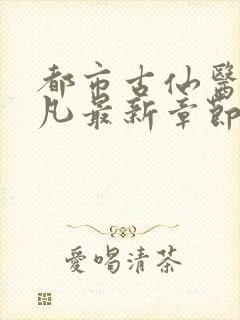 都市古仙醫
凡最新章節
愛喝清茶